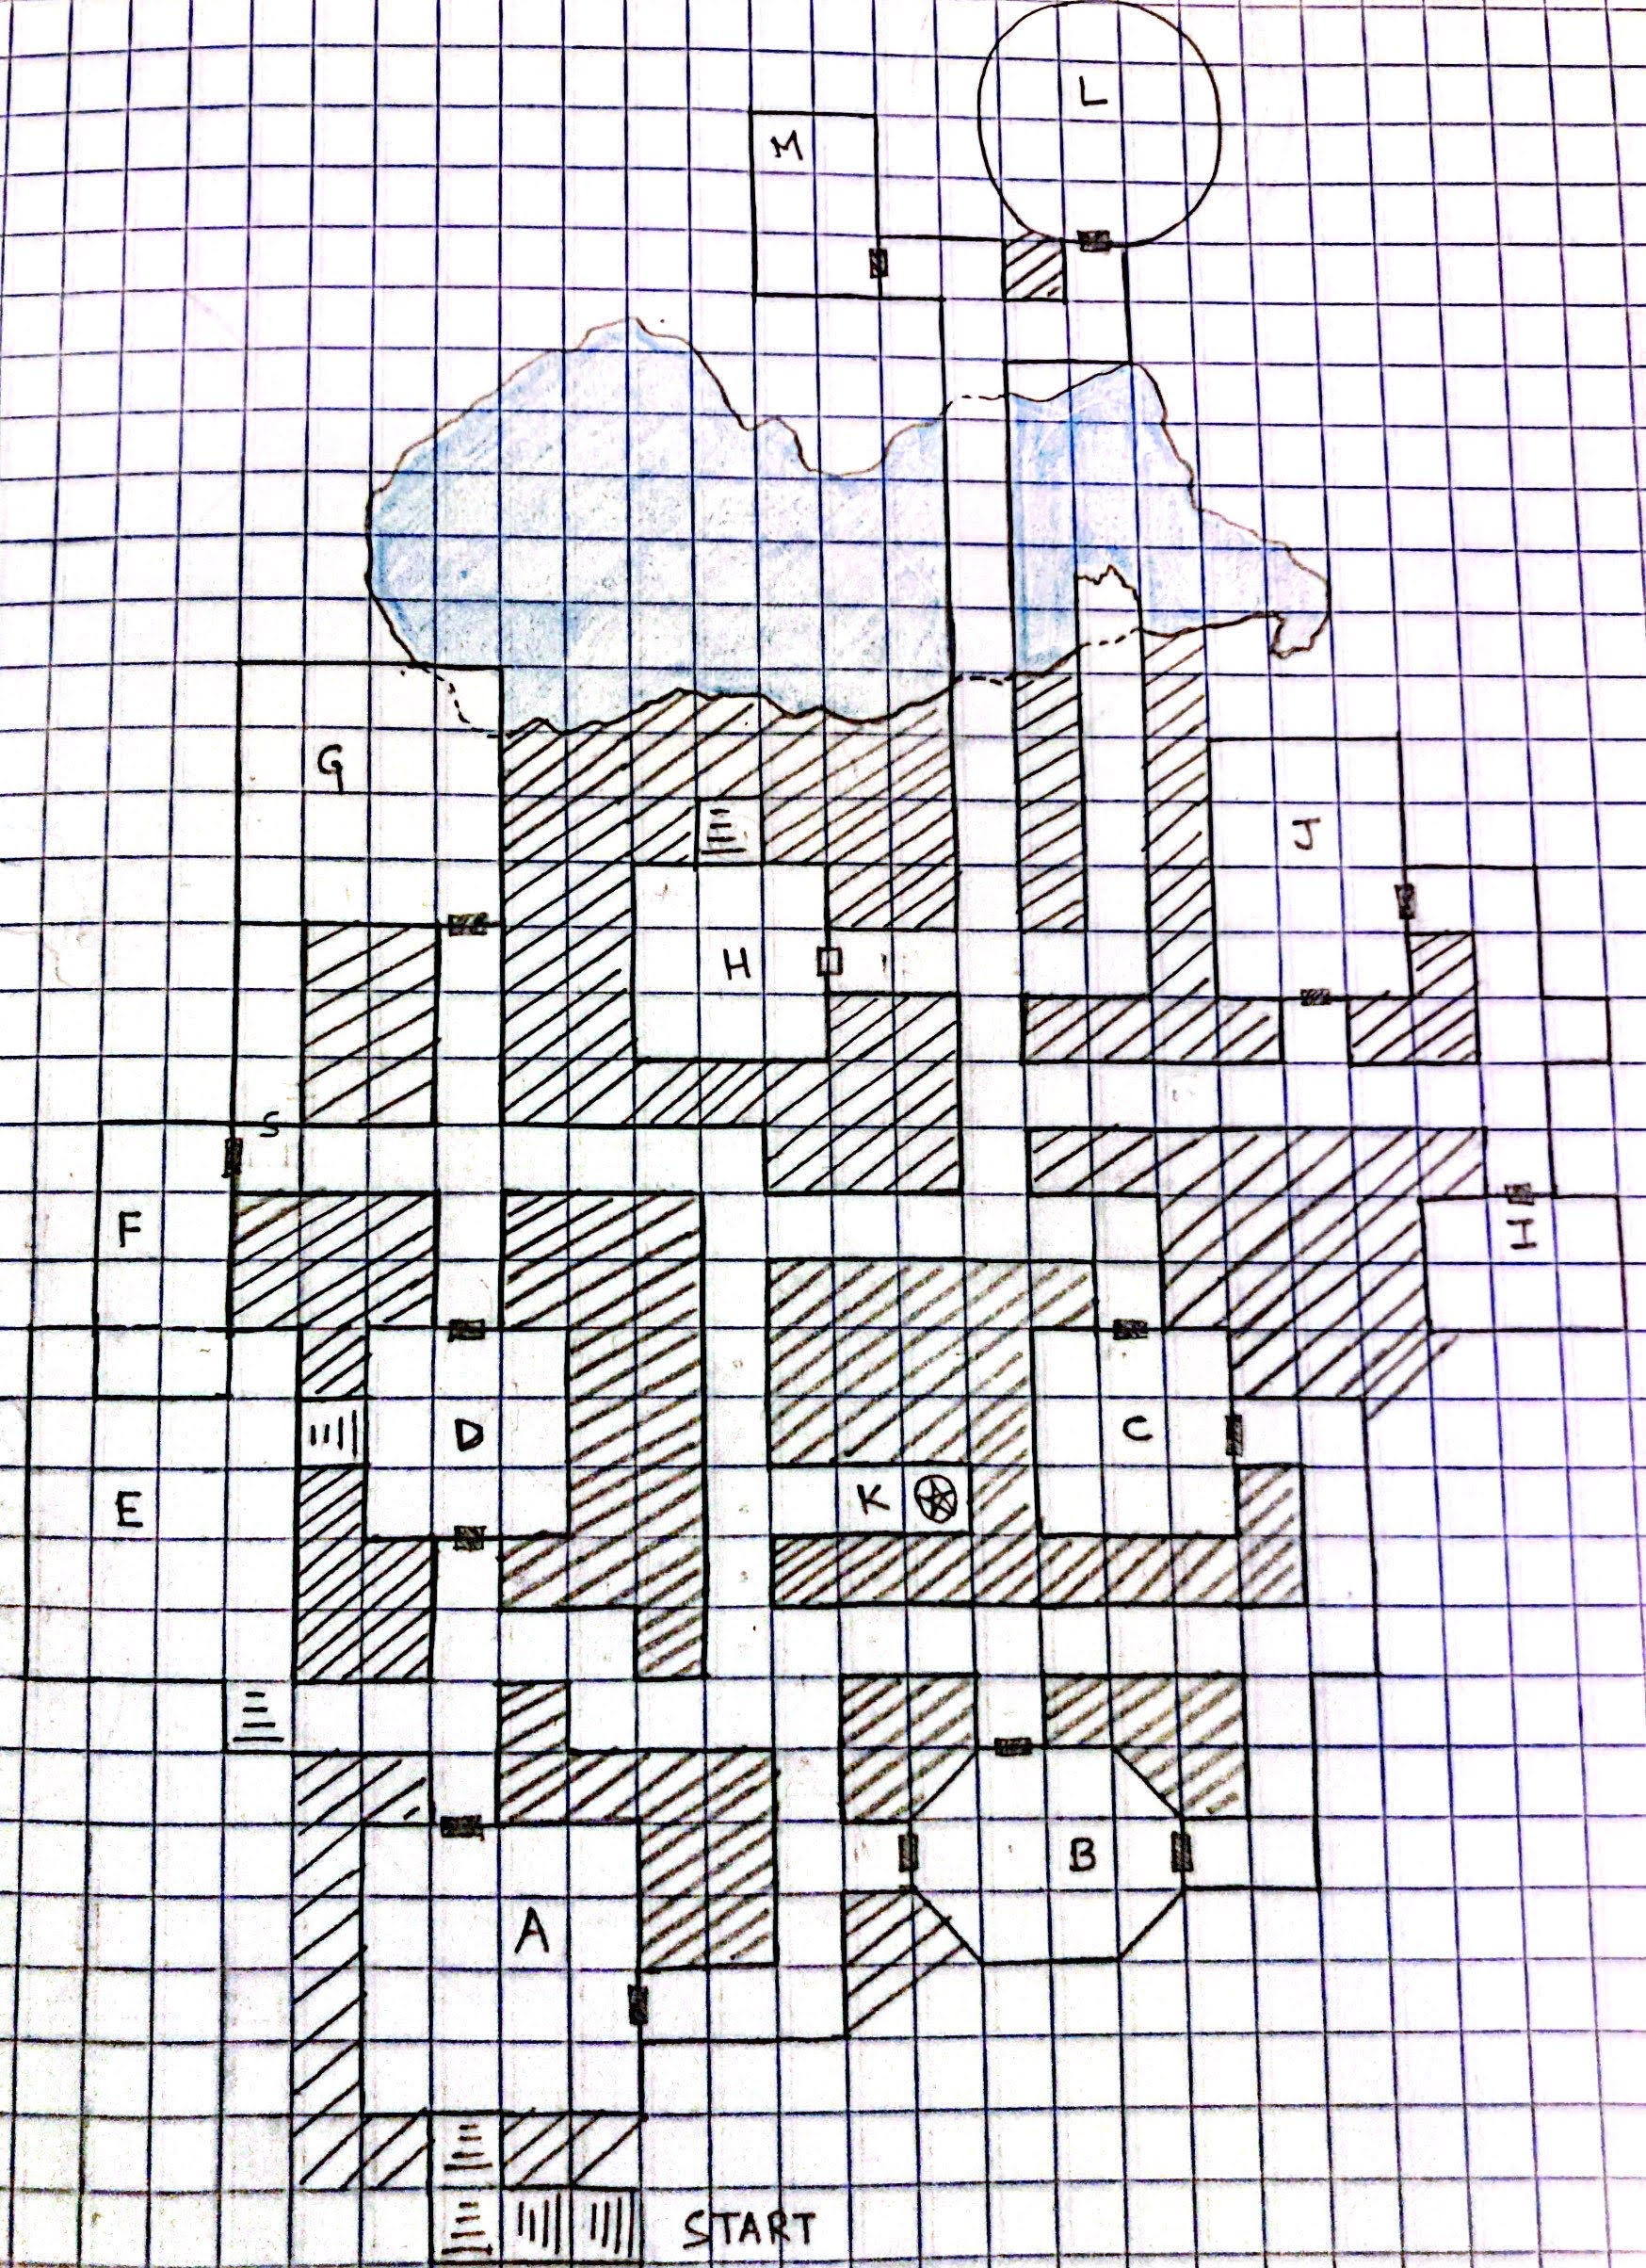 L
M
G
J
H
S
F
I
D
C
K
E
B
A
START